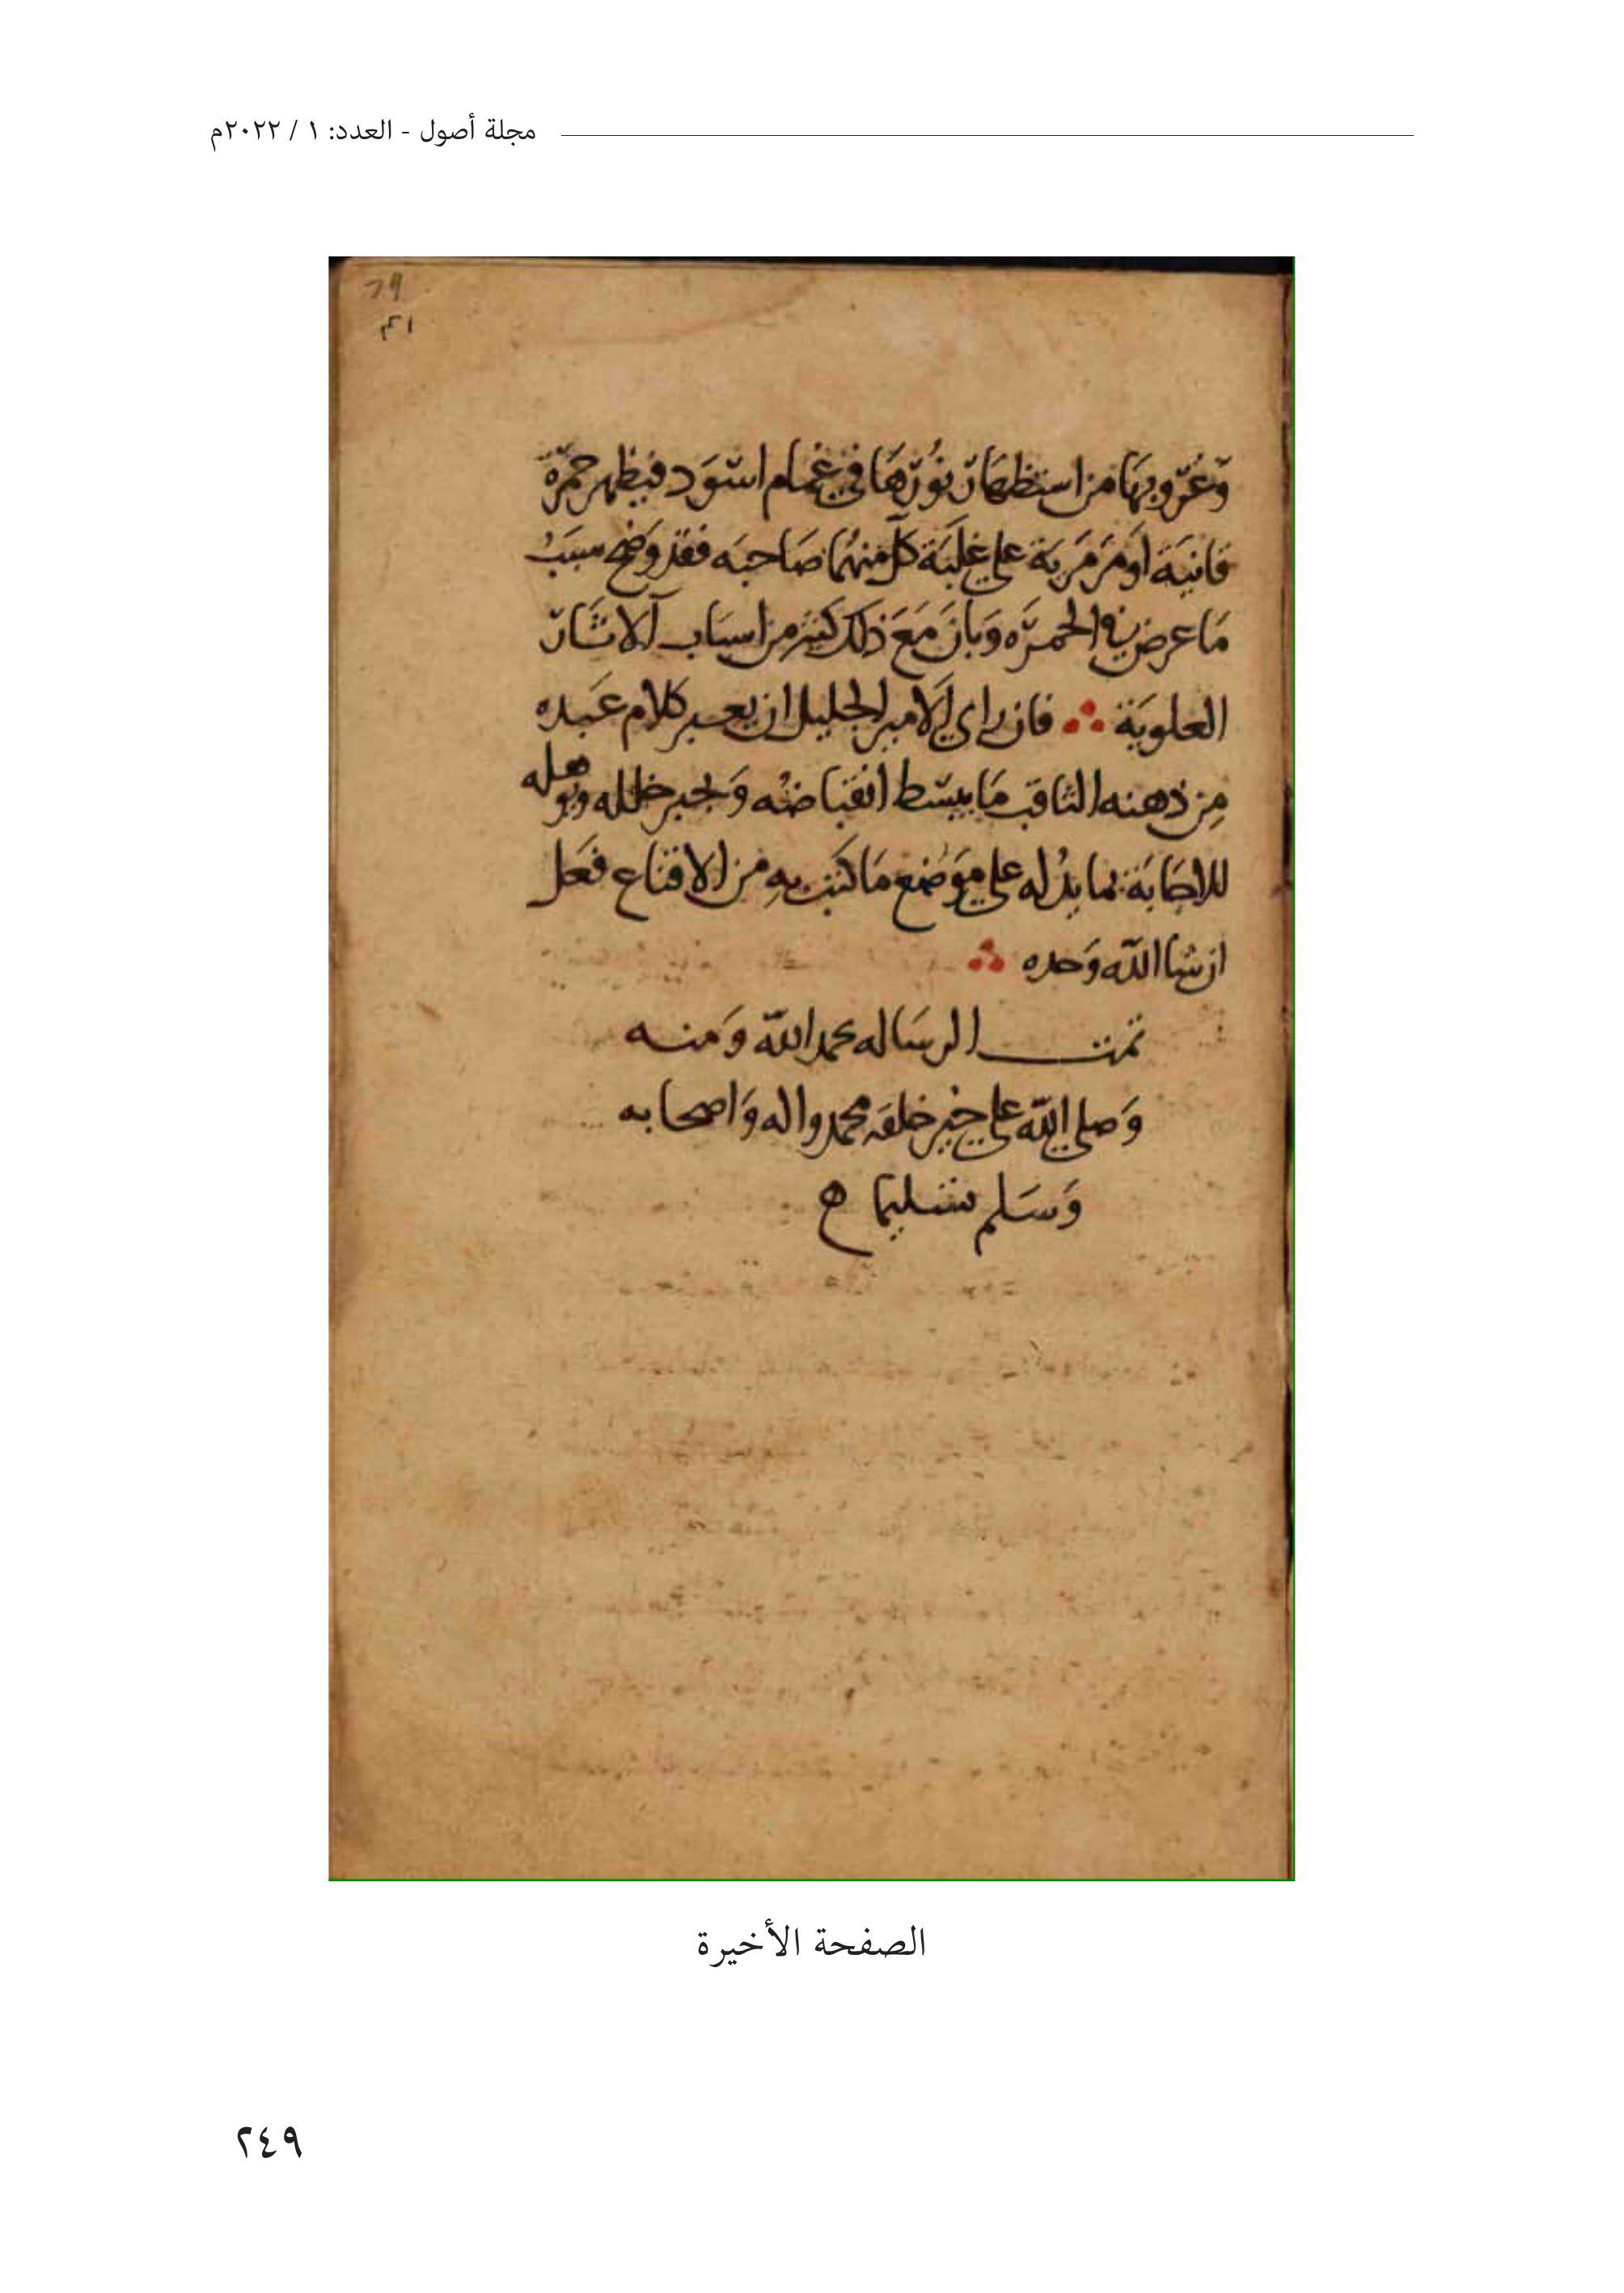 مجلة أصول - العدد: ١ / ٢٠٢٢م
٦٩
٤١
وغروبها من استظهار نورها في غمام اسود فيظهر حمرة
قانية او مرمرية على غلبة كل منهما صاحبه فقد وضح سبب
ما عرض في الحمره وبان مع ذلك كثير من اسباب الاثار
العلوية ∴ فان راي الامير الجليل ان يعير كلام عبده
من ذهنه الثاقب ما يبسط انقباضه ويجبر خلله ويوهله
للاصابة بما يدله على موضع ما كتب به من الاقناع فعل
ان شا الله وحده ∴
تمت الرساله بحمد الله ومنه
وصلى الله على خير خلقه محمد واله واصحابه
وسلم تسليما
الصفحة الأخيرة
٢٤٩